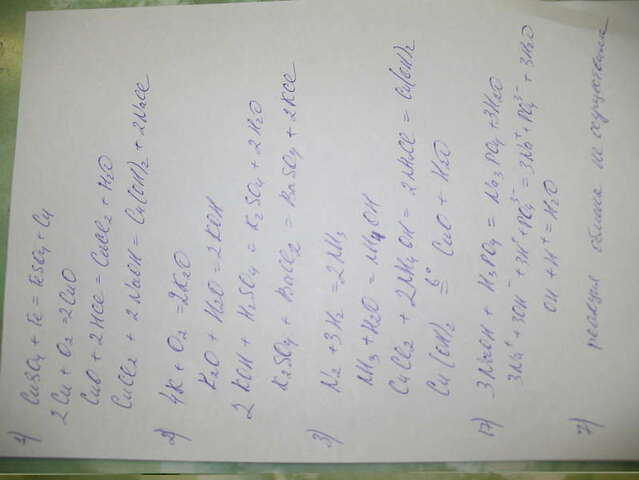 1) CuSO4 + Fe = FeSO4 + Cu
2Cu + O2 = 2CuO
CuO + 2HCl = CuCl2 + H2O
CuCl2 + 2NaOH = Cu(OH)2 + 2NaCl
2) 4K + O2 = 2K2O
K2O + H2O = 2KOH
2KOH + H2SO4 = K2SO4 + 2H2O
K2SO4 + BaCl2 = BaSO4 + 2KCl
3) N2 + 3H2 = 2NH3
NH3 + H2O = NH4OH
CuCl2 + 2NH4OH = 2NH4Cl = Cu(OH)2
Cu(OH)2 =t° CuO + H2O
17) 3NaOH + H3PO4 = Na3PO4 + 3H2O
3Na+ + 3OH- + 3H+ + PO4 3- = 3Na+ + PO4 3- + 3H2O
OH + H+ = H2O
7) реакция обмена не осуществима